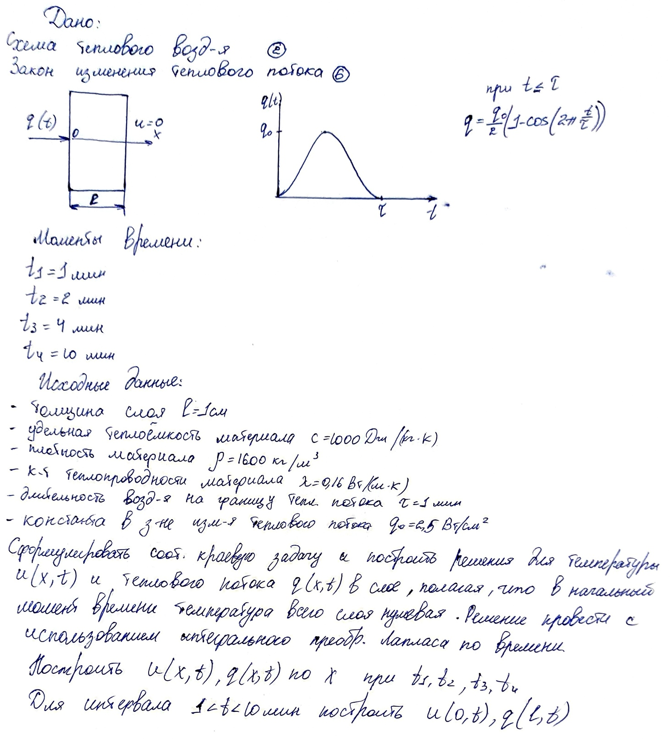 Дано:
Схема теплового возд-я ②
Закон изменения теплового потока ⑥
при t ≤ τ
q = q₀/2 (1-cos(2π t/τ))
q(t)
0
u=0
x
l
q(t)
q₀
τ
t
Моменты времени:
t1 = 1 мин
t2 = 2 мин
t3 = 4 мин
t4 = 10 мин
Исходные данные:
- толщина слоя l=1см
- удельная теплоёмкость материала c=1000 Дж/(кг·К)
- плотность материала ρ=1600 кг/м³
- к-т теплопроводности материала λ=0,16 Вт/(м·К)
- длительность возд-я на границу тепл. потока τ=1 мин
- константа в з-не изм-я теплового потока q₀=2,5 Вт/см²
Сформулировать соот. краевую задачу и построить решения для температуры
u(x,t) и теплового потока q(x,t) в слое, полагая, что в начальный
момент времени температура всего слоя нулевая. Решение провести с
использованием интегрального преобр. Лапласа по времени.
Построить u(x,t), q(x,t) по x при t1, t2, t3, t4
Для интервала 1<t<10 мин построить u(0,t), q(l,t)